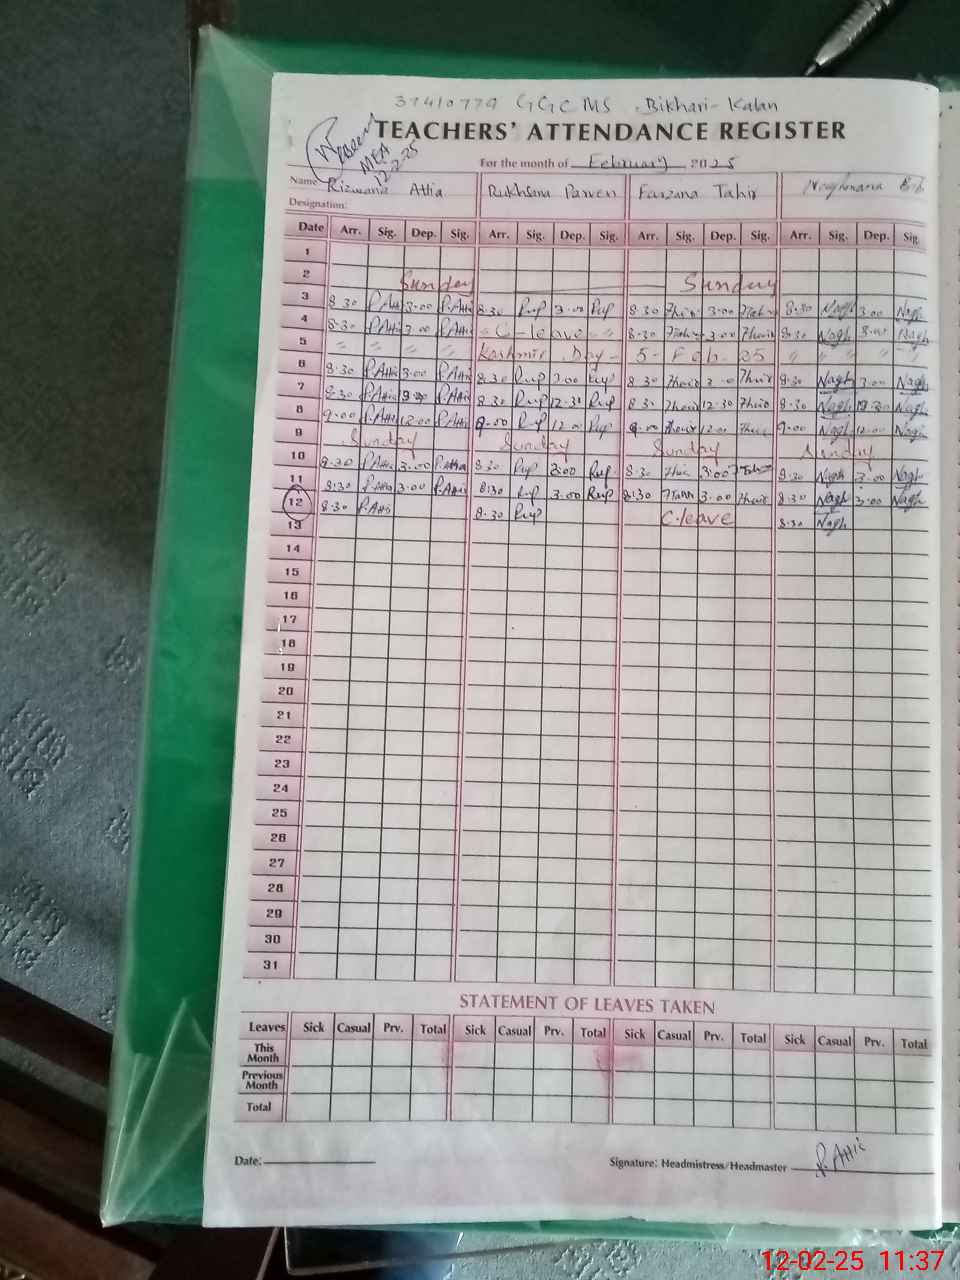 37410779 GGCMS Bikhari-Kalan
TEACHERS' ATTENDANCE REGISTER
MEA
12-2-25
For the month of February 2025
Name Rizwana Attia Rukhsana Parven Farzana Tahir Naghmana Bibi
Designation:
Date Arr. Sig. Dep. Sig. Arr. Sig. Dep. Sig. Arr. Sig. Dep. Sig. Arr. Sig. Dep. Sig.
1
2 Sunday Sunday
3 8.30 R.Attia 3.00 R.Attia 8.30 Rup 3.00 Rup 8.30 3.00 8.30 Nagh 3.00 Nagh
4 8.30 R.Attia 3.00 R.Attia C-leave 8.30 3.00 8.30 Nagh 3.00 Nagh
5 " " " " Kashmir Day - 5 - Feb. 25 " " " "
6 8.30 R.Attia 3.00 R.Attia 8.30 Rup 3.00 Rup 8.30 3.00 8.30 Nagh 3.00 Nagh
7 8.30 R.Attia R.Attia 8.30 Rup 12.30 Rup 8.30 12.30 8.30 Nagh 12.30 Nagh
8 9.00 R.Attia 12.00 R.Attia 9.00 Rup 12.00 Rup 9.00 12.00 9.00 Nagh 12.00 Nagh
9 Sunday Sunday Sunday Sunday
10 8.30 R.Attia 3.00 R.Attia 8.30 Rup 3.00 Rup 8.30 3.00 8.30 Nagh 3.00 Nagh
11 8.30 R.Attia 3.00 R.Attia 8.30 Rup 3.00 Rup 8.30 3.00 8.30 Nagh 3.00 Nagh
12 8.30 R.Attia 8.30 Rup C.leave 8.30 Nagh
13
14
15
16
17
18
19
20
21
22
23
24
25
26
27
28
29
30
31
STATEMENT OF LEAVES TAKEN
Leaves Sick Casual Prv. Total Sick Casual Prv. Total Sick Casual Prv. Total Sick Casual Prv. Total
This Month
Previous Month
Total
Date: Signature: Headmistress/Headmaster R.Attia
12-02-25 11:37